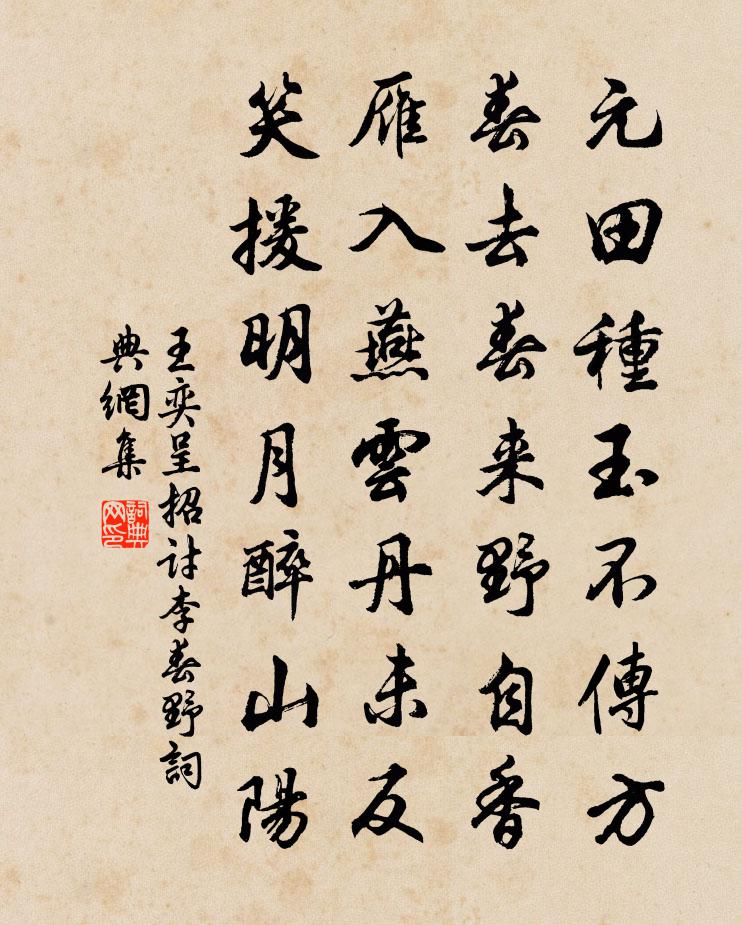 元田種玉不傳方
春去春来野自香
雁入燕雲丹未反
笑援明月醉山陽
王奕呈招討李春野詞
典網集
詞典网印